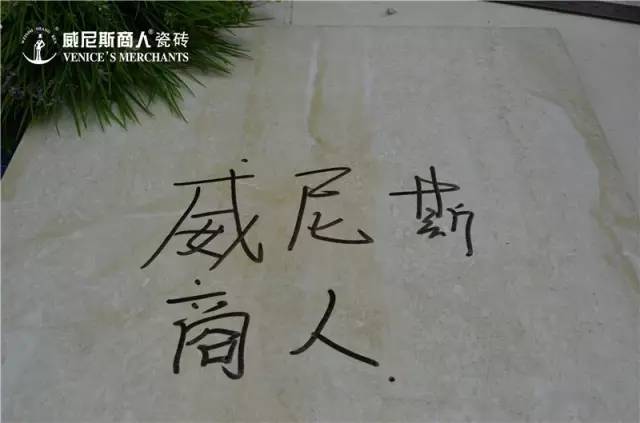 威尼斯商人®瓷砖
VENICE'S MERCHANTS
威尼斯
商人.